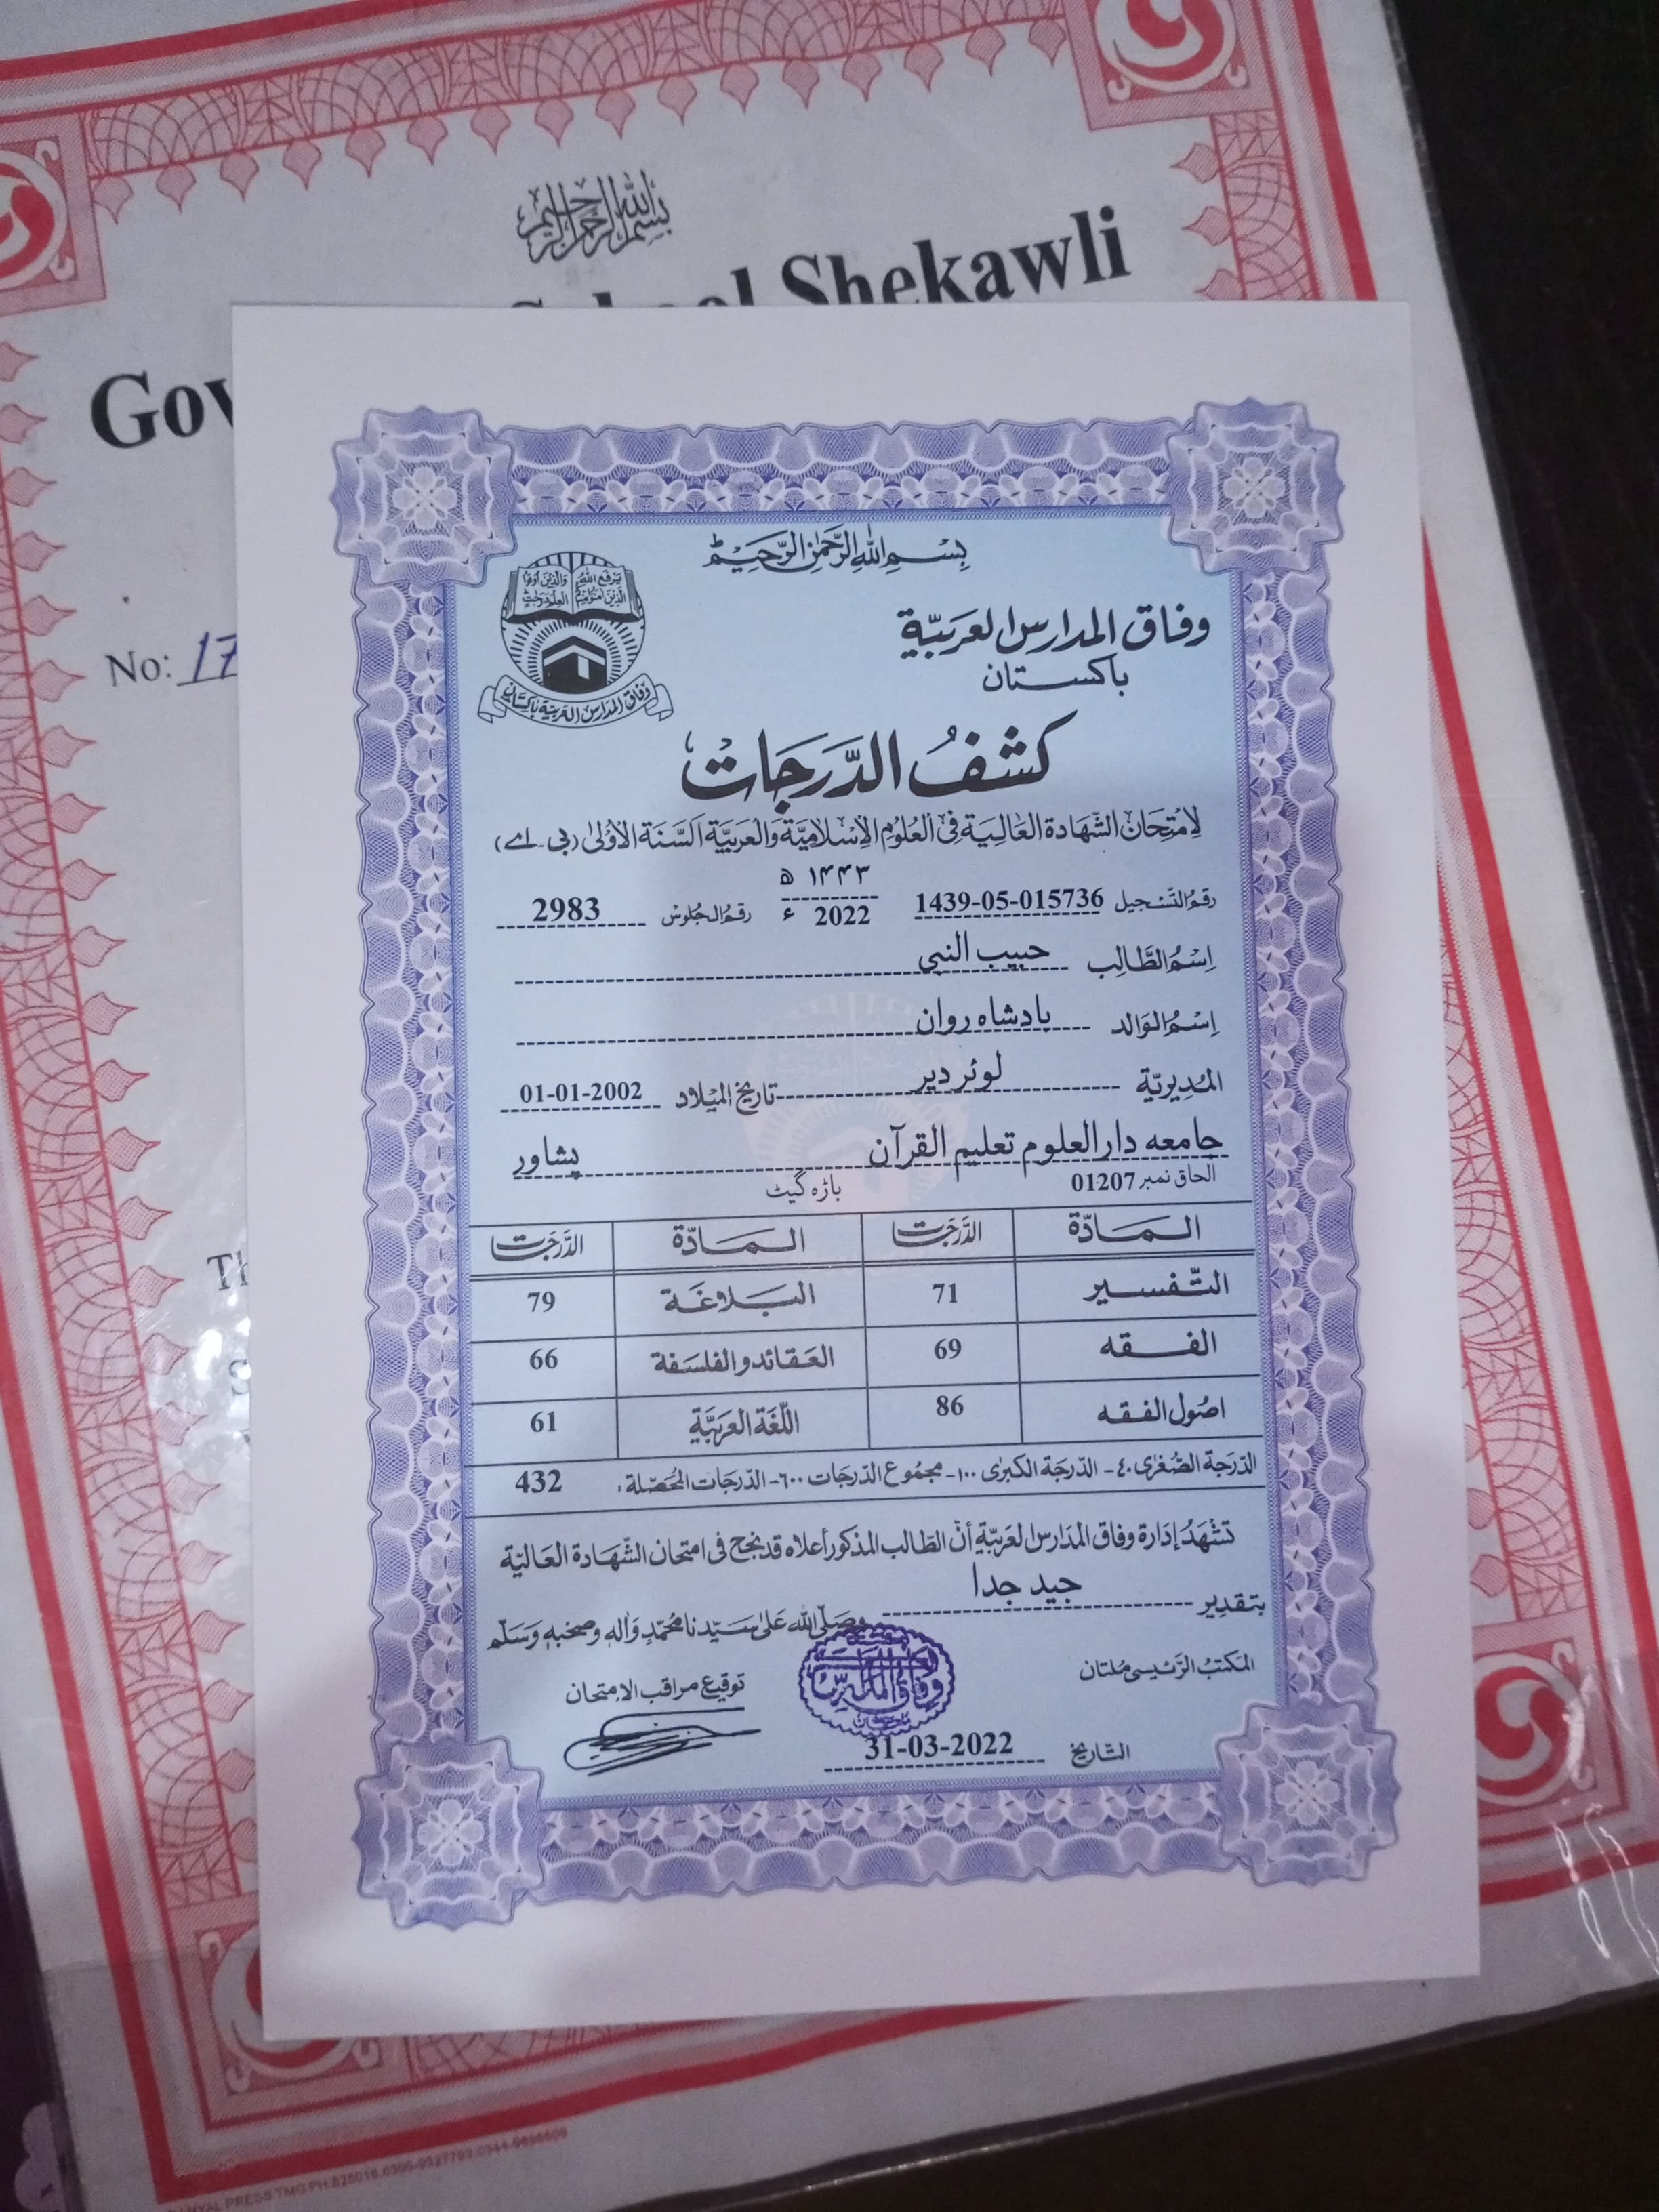 بسم الله الرحمن الرحيم
School Shekawli
Gov
No: 17
بِسْمِ اللهِ الرَّحْمٰنِ الرَّحِيْمِ
يرفع الله الذين آمنوا منكم والذين اوتوا العلم درجٰت
وفاق المدارس العربية باكستان
وفاق المدارس العربيّة
باكستان
كشفُ الدَّرَجَاتْ
لِامْتِحَانِ الشَّهَادة العَالِيَة فِى العُلُومِ الاِسْلَامِيَّة وَالعَرَبِيَّة اَلسَّنَة الأُوْلىٰ (بی-اے)
رقمُ التَّسْجيل 1439-05-015736 ۱۴۴۳ ھ 2022 ء رقمُ الجُلوس 2983
اِسْمُ الطَّالِب حبیب النبی
اِسْمُ الوَالد بادشاہ روان
المُديريّة لوئر دیر تاريخ الميلاد 01-01-2002
جامعہ دارالعلوم تعلیم القرآن پشاور
الحاق نمبر 01207 باڑہ گیٹ
المَادّة الدَّرَجَات المَادّة الدَّرَجَات
التّفسير 71 البَلاغَة 79
الفقه 69 العَقائد والفلسَفة 66
اصُول الفقه 86 اللّغَة العَربَيَّة 61
الدّرَجة الصُّغرى ٤٠ - الدّرجَة الكبرىٰ ١٠٠ - مجمُوع الدّرجَات ٦٠٠ - الدّرجَات المُحَصّلة: 432
تشْهَدُ إدَارة وفاق المدَارس العَربيّة أنّ الطّالب المذكور أعلاه قد نجح فى امتحان الشّهَادة العَاليَة
بتقدير جيد جدا
وصَلّى الله عَلىٰ سَيّدنا مُحَمّدٍ وَاٰلهٖ وصَحْبهٖ وَسَلّم
المَكتبُ الرَّئيسى مُلتان
توقيع مراقب الامتحان
وفاق المدارس
التّاريخ 31-03-2022
Th